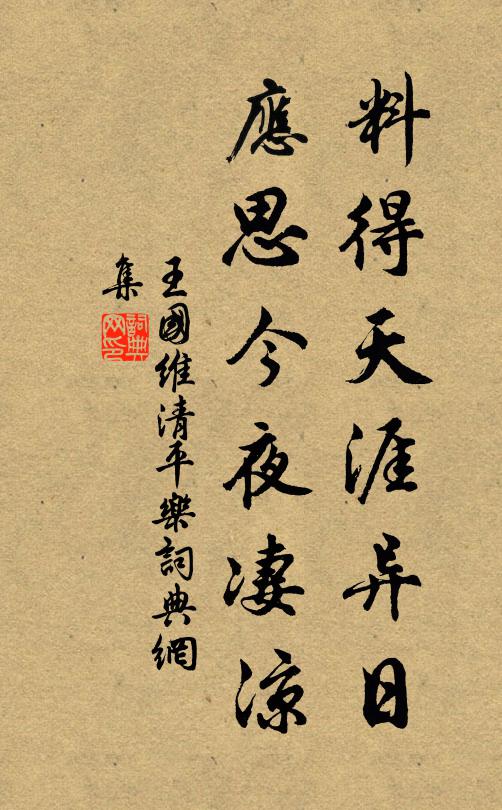 料得天涯异日
應思今夜凄涼
王國維清平樂詞典網
集
詞典
网印